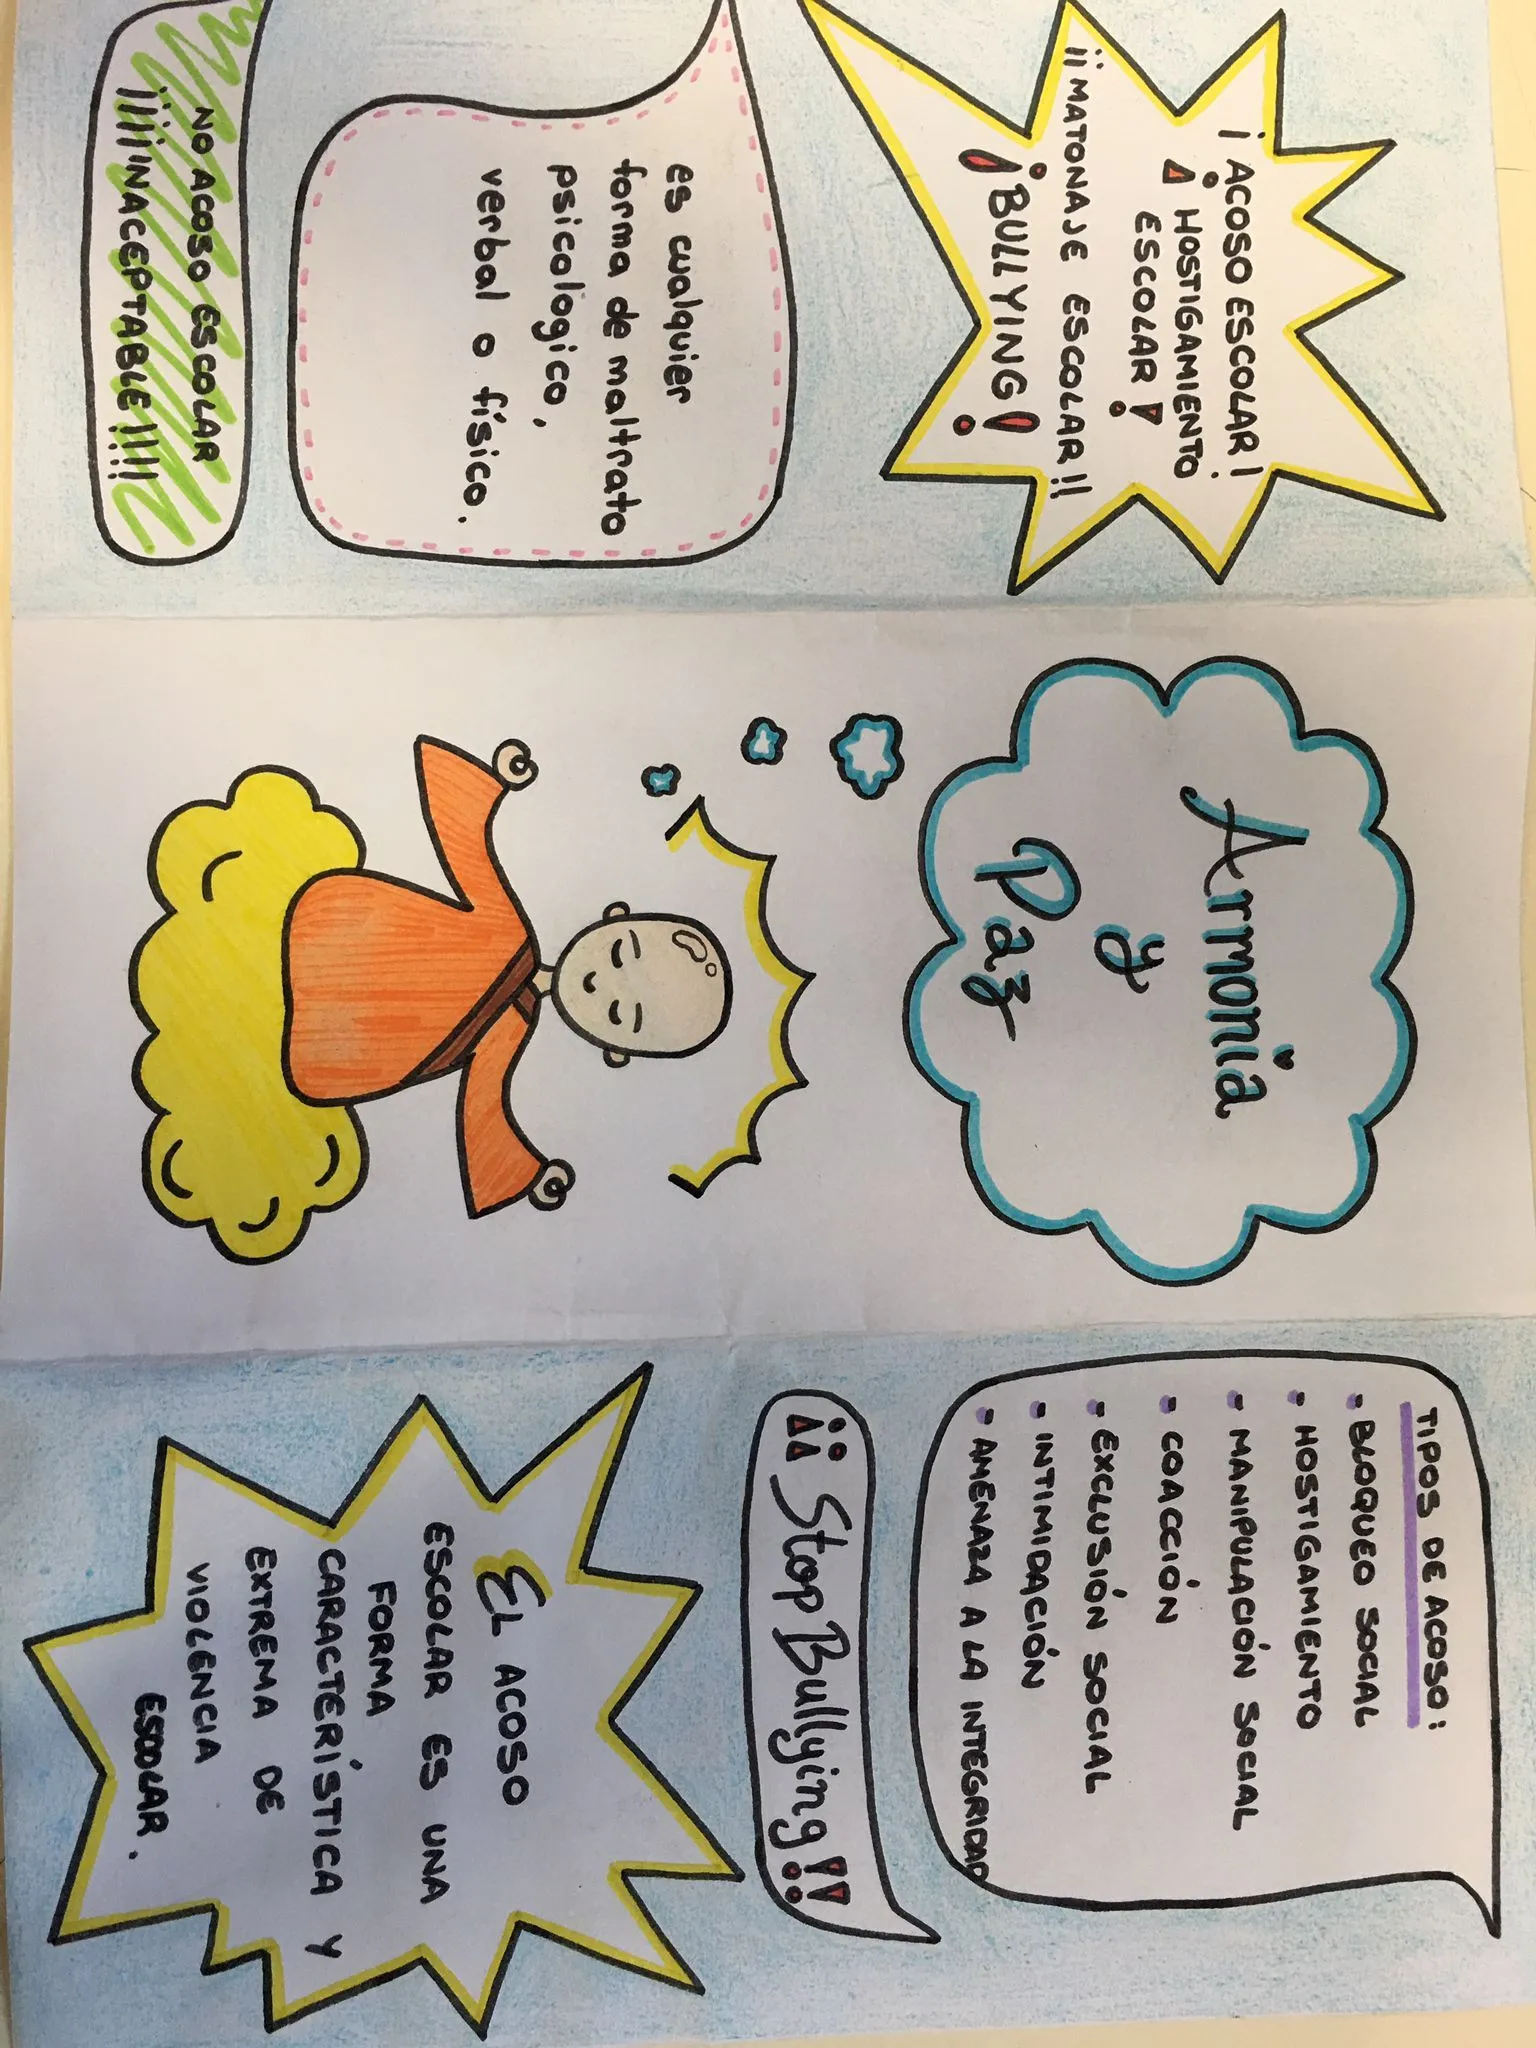 ¡ACOSO ESCOLAR!
¡HOSTIGAMIENTO
ESCOLAR!
¡¡MATONAJE ESCOLAR!!
¡BULLYING!
es cualquier
forma de maltrato
psicologico,
verbal o físico.
NO ACOSO ESCOLAR
¡¡¡¡INACEPTABLE!!!!
Armonia
y
Paz
TIPOS DE ACOSO:
- BLOQUEO SOCIAL
- HOSTIGAMIENTO
- MANIPULACIÓN SOCIAL
- COACCIÓN
- EXCLUSIÓN SOCIAL
- INTIMIDACIÓN
- AMENAZA A LA INTEGRIDAD
¡¡StopBullying!!
EL ACOSO
ESCOLAR ES UNA
FORMA
CARACTERÍSTICA Y
EXTREMA DE
VIOLENCIA
ESCOLAR.